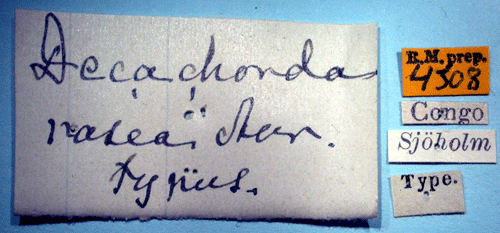 Decachorda
rosea Aur.
typus.
R.M. prep.
4308
Congo
Sjöholm
Type.